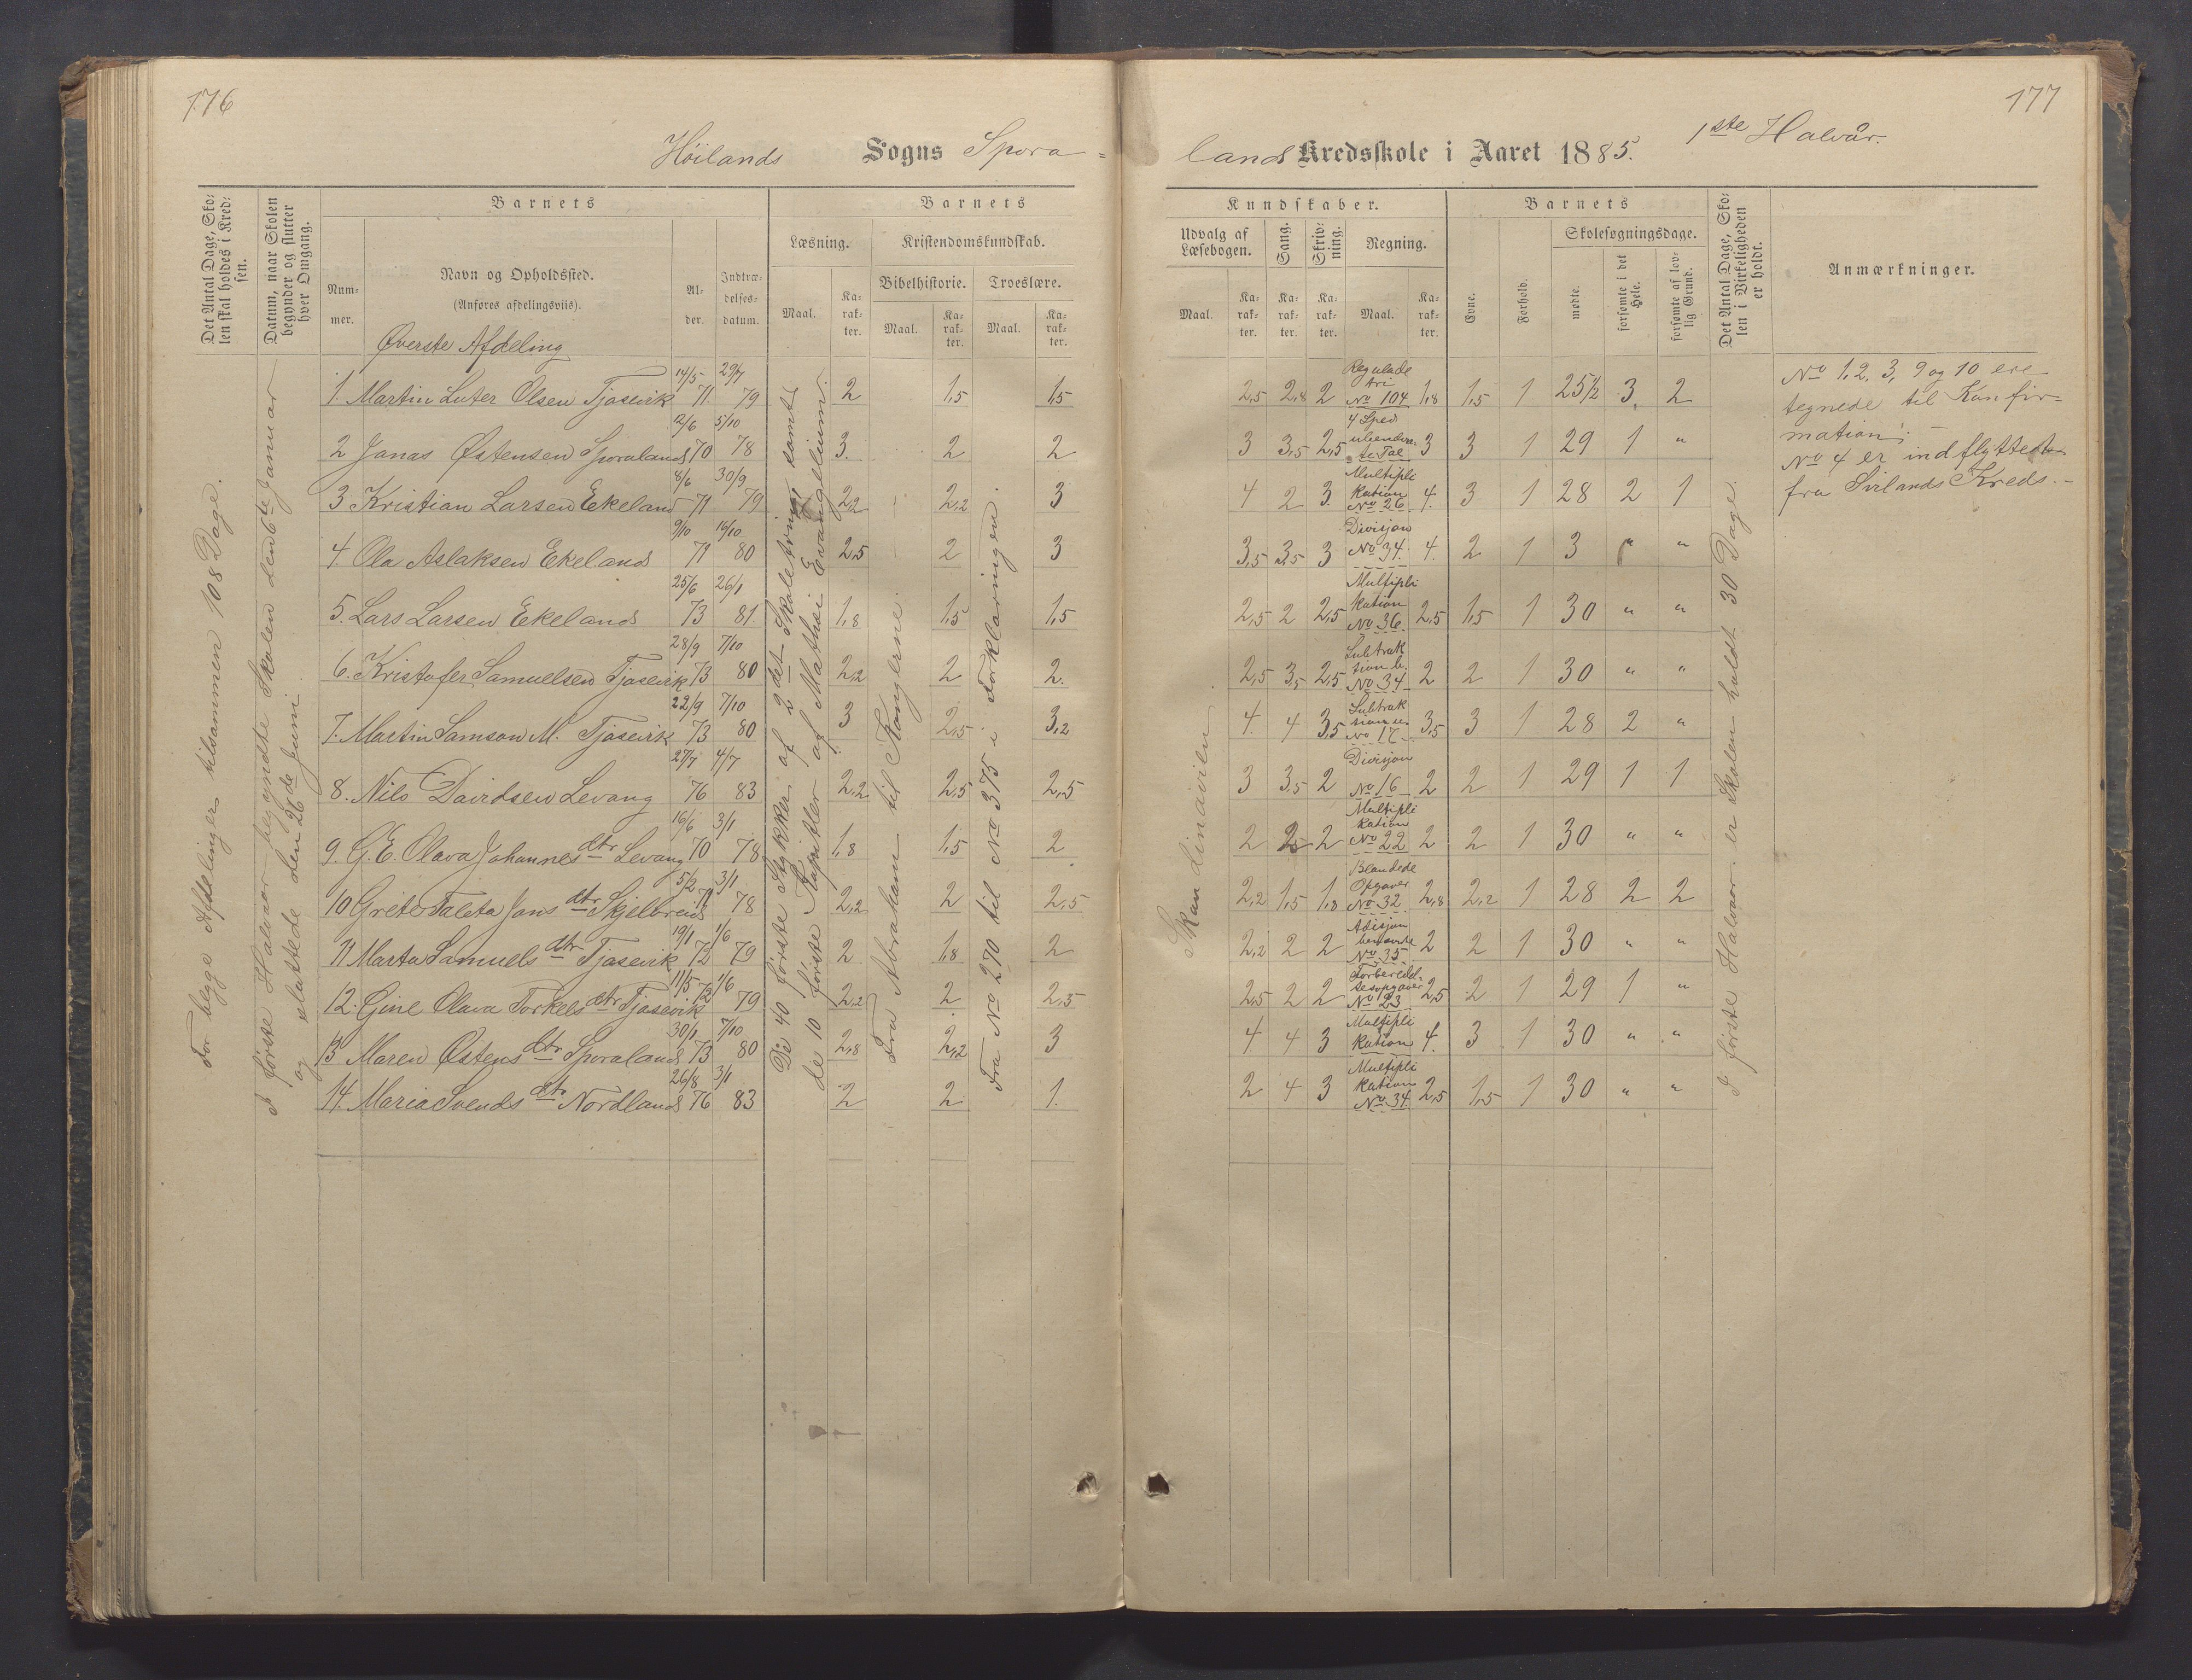 176
177
Høilands Sogns Spora=
lands Kredsskole i Aaret 1885. 1ste Halvår.
Det Antal Dage, Sko-
len skal holdes i Kred-
sen.
Datum, naar Skolen
begynder og slutter
hver Omgang.
Barnets
Num-
mer.
Navn og Opholdssted.
(Anføres afdelingsviis).
Al-
der.
Indtræ-
delses-
datum.
Barnets
Læsning.
Kristendomskundskab.
Bibelhistorie. Troeslære.
Maal. Ka-
rak-
ter.
Maal. Ka-
rak-
ter.
Maal. Ka-
rak-
ter.
Kundskaber.
Udvalg af
Læsebogen.
Sang.
Skriv-
ning.
Regning.
Maal. Ka-
rak-
ter.
Ka-
rak-
ter.
Ka-
rak-
ter.
Maal. Ka-
rak-
ter.
Barnets
Evne.
Forhold.
Skolesøgningsdage.
mødte.
forsømte i det
Hele.
forsømte af lov-
lig Grund.
Det Antal Dage, Sko-
len i Virkeligheden
er holdt.
Anmærkninger.
For begge Afdelinger tilsammen 108 Dage.
I første Halvaar begyndte Skolen den 6te Januar
og sluttede den 26de Juni.
De 40 første Stykker af 2det Skoletrin samt
de 10 første Kapitler af Mathæi Evangelium.
Fra Abraham til Kongerne.
Fra No 270 til No 375 i Forklaringen.
Skandinavien.
I første Halvaar er Skolen holdt 30 Dage.
Øverste Afdeling
1. Martin Luter Olsen Tjosevik 14/5 71 29/7 79 2 1,5 1,5 2,5 2,8 2 Regulade tri No 104 1,8 1,5 1 25½ 3 2
2 Jonas Østensen Sporaland 12/6 70 5/10 78 3. 2 2 3 3,5 2,5 4 Sped te Tal 3 3 1 29 1 "
3 Kristian Larsen Ekeland 8/6 71 30/9 79 2,2 2,2 3 4 2 3. Multipli kation No 26 4. 3 1 28 2 1
4. Ola Aslaksen Ekeland 9/10 71 14/10 80 2,5 2 3 3,5 3,5 3 Divisjon No 34. 4. 2 1 3 " "
5. Lars Larsen Ekeland 25/6 73 26/1 81. 1,8 1,5 1,5 2,5 2 2,5 Multipli kation No 36 2,5 1,5 1 30 " "
6. Kristofer Samuelsen Tjosevik 28/9 73 7/10 80 2,2 2 2. 2,5 3,5 2,5 Subtrak tion b. No 34 2 2 1 30 " "
7. Martin Samson M. Tjosevik 22/9 73 7/10 80 3 2,5 3,2 4. 4 3,5 Subtrak sion u. No 17 3,5 3 1 28 2 "
8. Nils Davidsen Levang 27/7 76 4/7 83 2,2 2,5 2,5 3 3,5 2 Divisjon No 16 2 2 1 29 1 1
9. G. E. Olava Johannesdtr Levang 16/6 70 3/1 78 1,8 1,5 2 2 2,5 2 Multipli kation No 22 2 2 1 30 " "
10 Grete Taleta Jonsdtr Skjelbreid 5/2 71 3/1 78 2,2 2 2,5 2,2 1,5 1,8 Blandede Opgaver No 32 2,8 2,2 1 28 2 2
11 Marta Samuelsdtr Tjosevik 19/1 72 1/6 79 2 1,8 2 2,2 2 2 Adisjon benævnte No 35 2 2 1 30 " "
12. Gine Olava Torkelsdtr Tjosevik 11/5 72 1/6 79 2,2 2 2,5 2,5 2 2 Forbered- sesopgaver No 123 2,5 2 1 29 1 "
13 Maren Østensdtr Sporaland 30/1 73 7/10 80 2,8 2,2 3 4. 4 3 Multipli kation 4. 3 1 30 " "
14. Maria Svendsdtr Nordland 26/8 76 3/1 83 2 2. 1. 2 4 3 Multipli kation No 34 2,5 1,5 1 30 " "
No 1, 2, 3, 9 og 10 ere
tegnede til Konfir=
mation; –
No 4 er indflyttet
fra Svilands Kreds. –